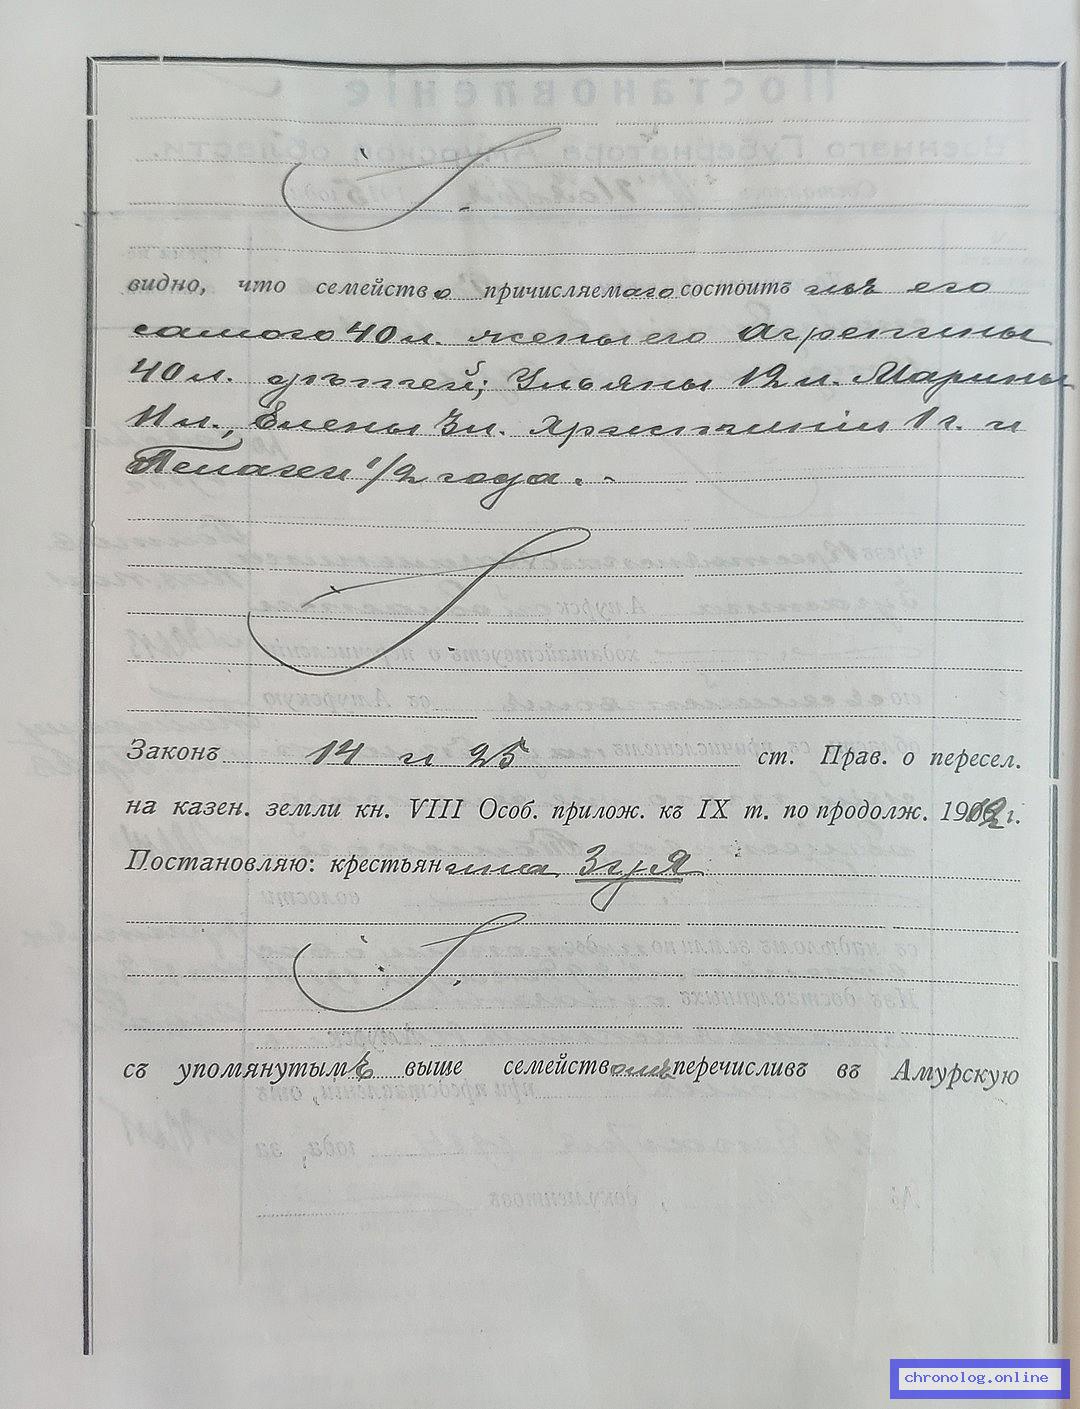 видно, что семейство причисляемаго состоитъ изъ его
самого 40 л. жены его Агрепины
40 л. дѣтей; Ульяны 12 л. Марины
11 л., Елены 3 л. Христинии 1 г. и
Пелагеи 1/2 года.
Законъ 14 и 25 ст. Прав. о пересел.
на казен. земли кн. VIII Особ. прилож. къ IX т. по продолж. 1912 г.
Постановляю: крестьянина Зуя
съ упомянутымъ выше семействомъ перечисливъ въ Амурскую
chronolog.online